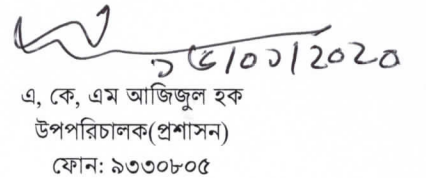 ১৫/০১/2020
এ, কে, এম আজিজুল হক
উপপরিচালক(প্রশাসন)
ফোন: ৯৩৩০৮০৫